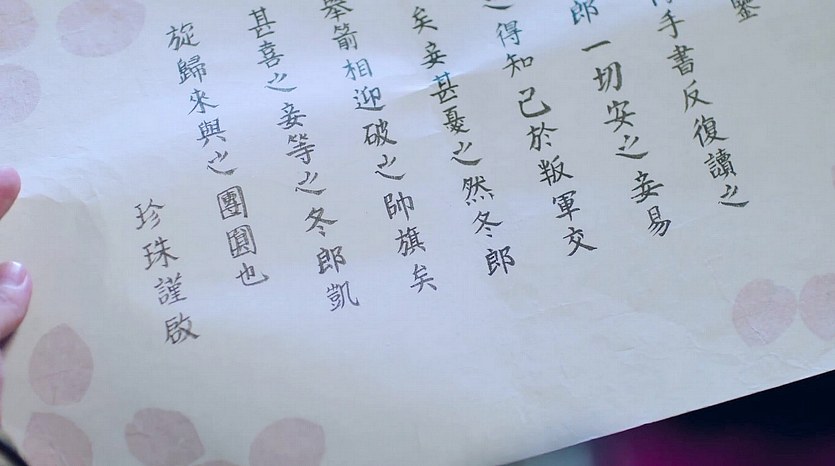 鑒
手書反復讀之
郎一切安之妾易
之得知已於叛軍交
矣妾甚憂之然冬郎
舉箭相迎破之帥旗矣
甚喜之妾等之冬郎凱
旋歸來與之團圓也
珍珠謹啟